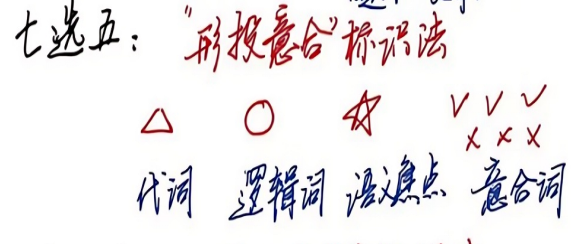 七选五："形投意合"标识法
△ ○ ☆ √ √ √
× × ×
代词 逻辑词 语义焦点 意合词